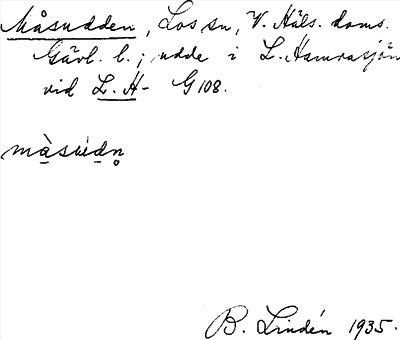 Måsudden, Los sn, V. Häls. doms.
Gävl. l.; udde i L. Hamrasjön
vid L. H- G 108.
màsùdn̥
B. Lindén 1935.